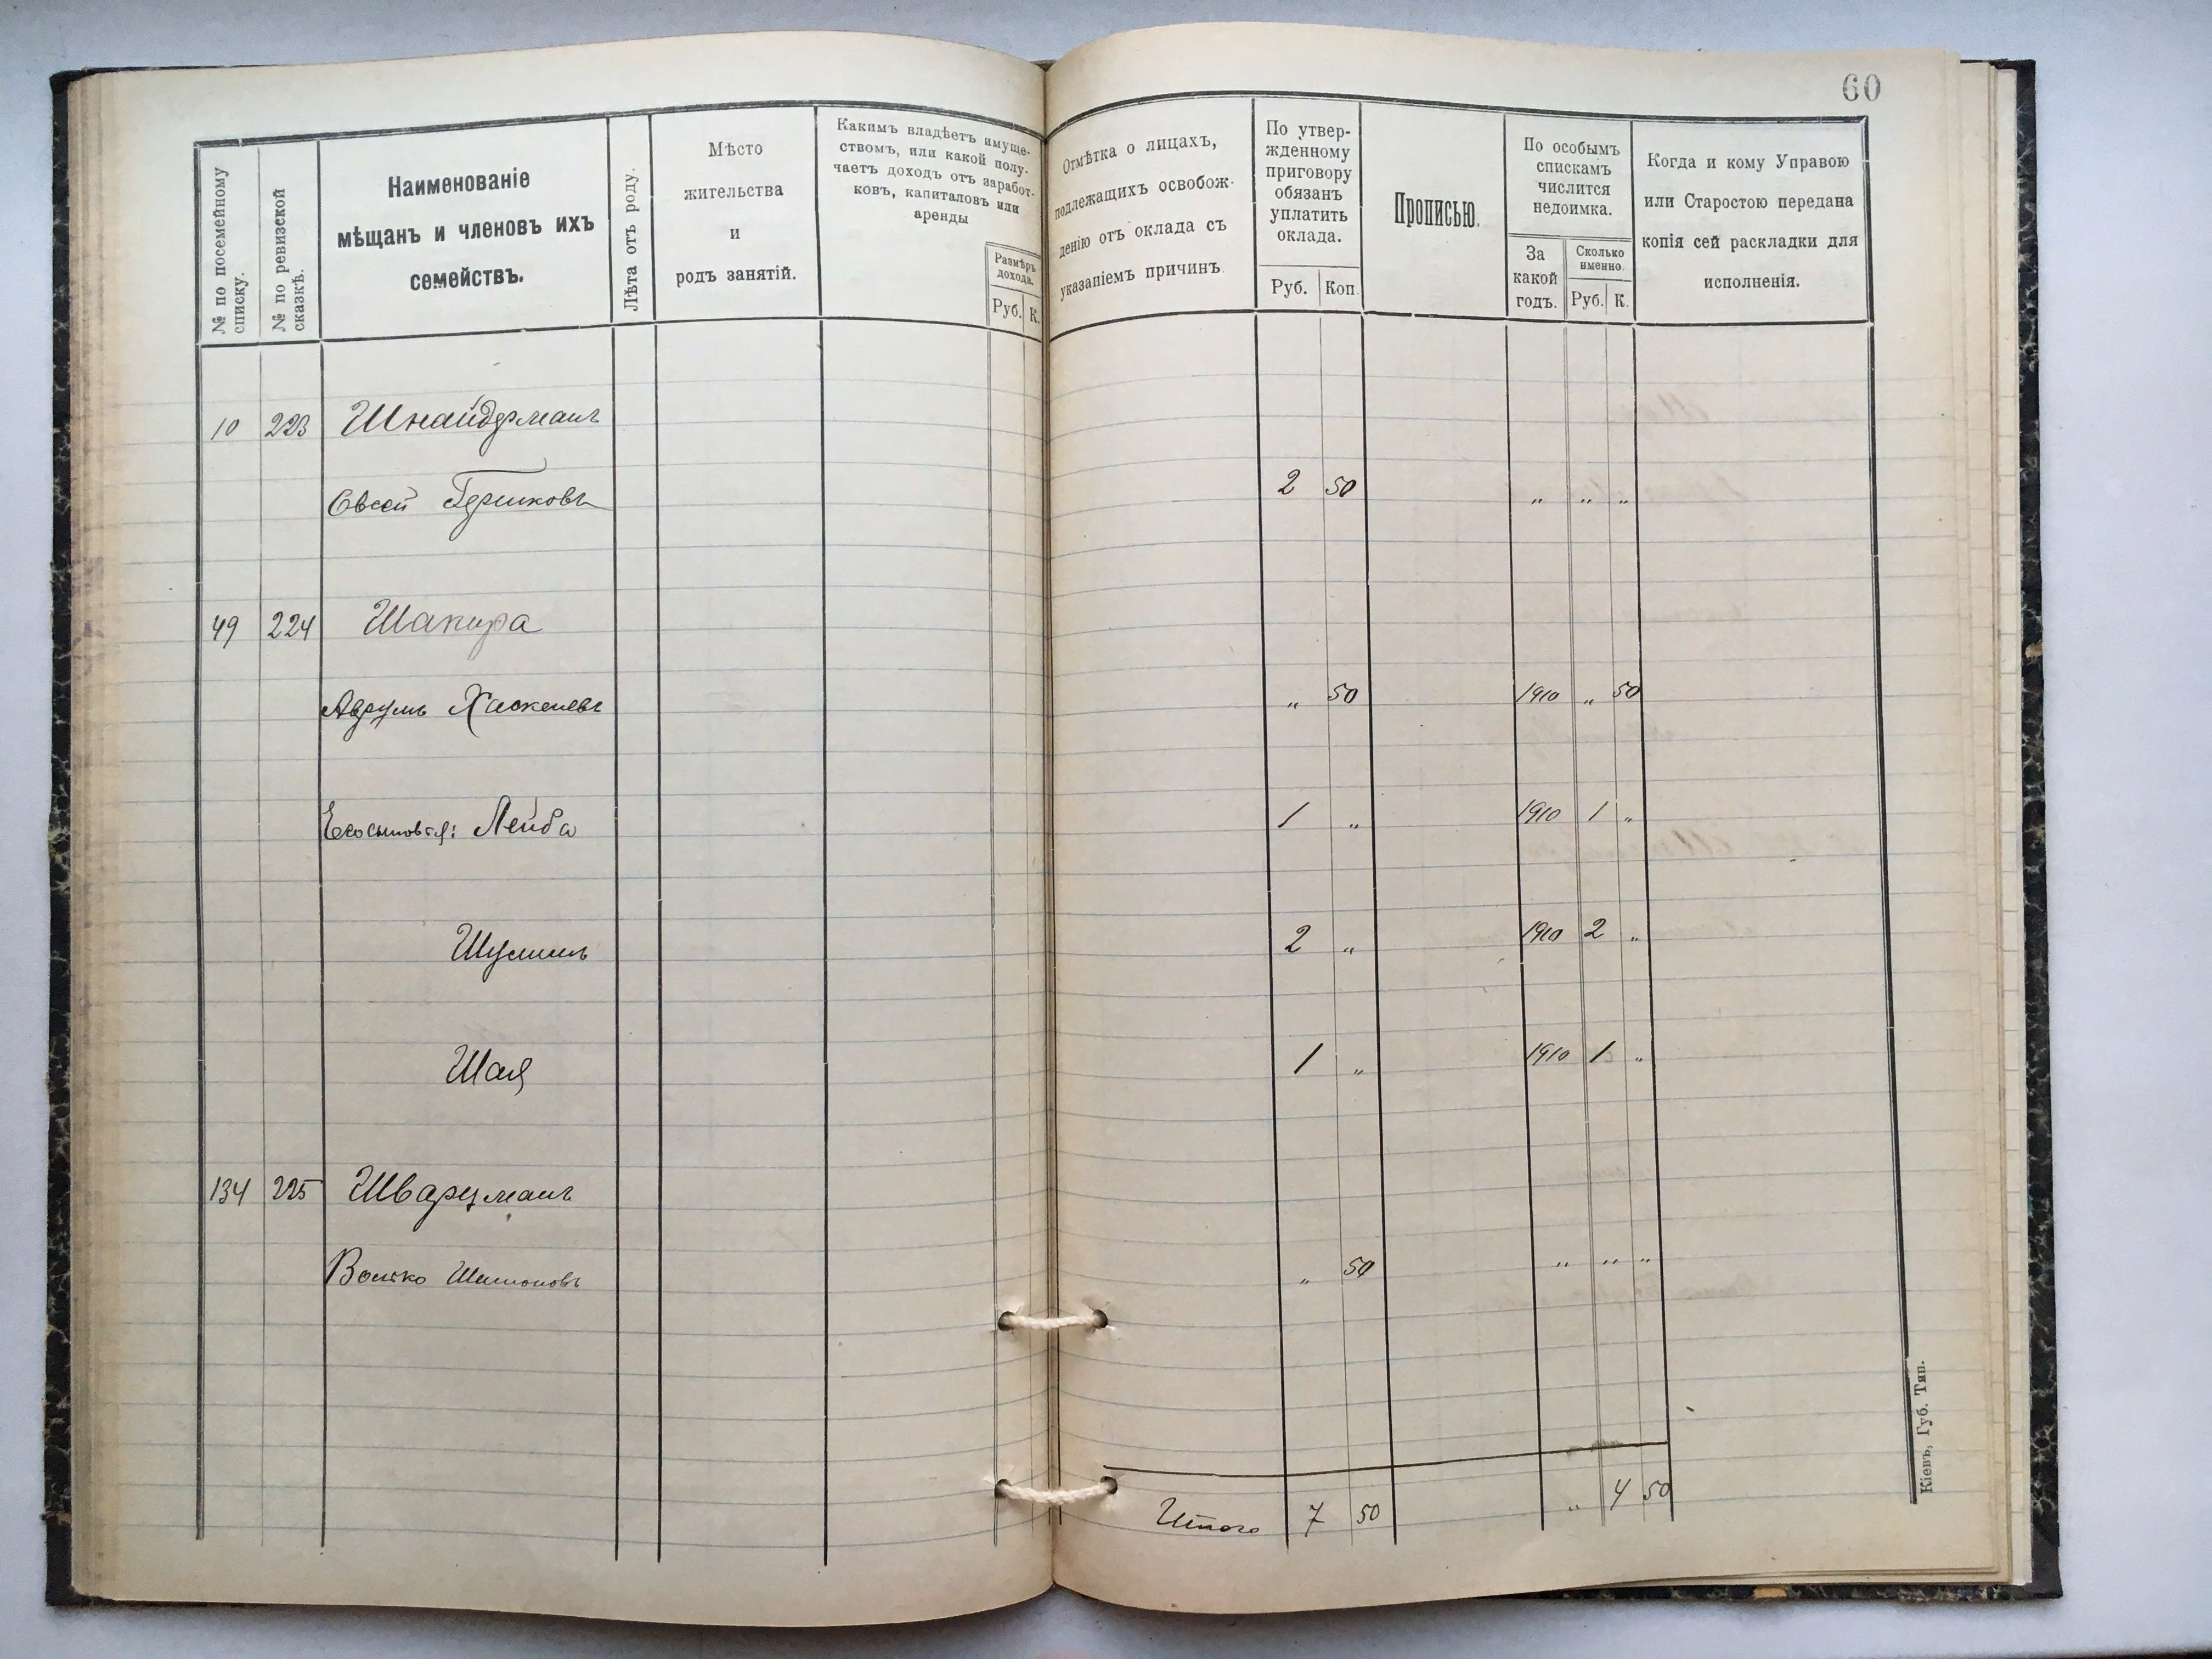 60
№ по посемейному
списку.
№ по ревизской
сказкѣ.
Наименованіе
мѣщанъ и членовъ ихъ
семействъ.
Лѣта отъ роду.
Мѣсто
жительства
и
родъ занятій.
Какимъ владѣетъ имуще-
ствомъ, или какой полу-
чаетъ доходъ отъ заработ-
ковъ, капиталовъ или
аренды
Размѣръ
дохода.
Руб. К.
Отмѣтка о лицахъ,
подлежащихъ освобож-
денію отъ оклада съ
указаніемъ причинъ
По утвер-
жденному
приговору
обязанъ
уплатить
оклада.
Руб. Коп.
Прописью.
По особымъ
спискамъ
числится
недоимка.
За
какой
годъ.
Сколько
именно.
Руб. К.
Когда и кому Управою
или Старостою передана
копія сей раскладки для
исполненія.
10 223 Шнайдерманъ
Евсей Гершковъ 2 50 „ „ „
49 224 Шапира
Аврумъ Хаскелевъ „ 50 1910 „ 50
Его сыновья: Лейба 1 „ 1910 1 „
Шулимъ 2 „ 1910 2 „
Шая 1 „ 1910 1 „
134 225 Шварцманъ
Волько Шимоновъ „ 50 „ „ „
Итого 7 50 „ 4 50
Кіевъ, Губ. Тип.